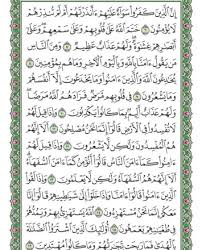 إِنَّ ٱلَّذِينَ كَفَرُوا۟ سَوَآءٌ عَلَيْهِمْ ءَأَنذَرْتَهُمْ أَمْ لَمْ تُنذِرْهُمْ
لَا يُؤْمِنُونَ ٦ خَتَمَ ٱللَّهُ عَلَىٰ قُلُوبِهِمْ وَعَلَىٰ سَمْعِهِمْ وَعَلَىٰٓ
أَبْصَٰرِهِمْ غِشَٰوَةٌ وَلَهُمْ عَذَابٌ عَظِيمٌ ٧ وَمِنَ ٱلنَّاسِ
مَن يَقُولُ ءَامَنَّا بِٱللَّهِ وَبِٱلْيَوْمِ ٱلْءَاخِرِ وَمَا هُم بِمُؤْمِنِينَ ٨
يُخَٰدِعُونَ ٱللَّهَ وَٱلَّذِينَ ءَامَنُوا۟ وَمَا يَخْدَعُونَ إِلَّآ أَنفُسَهُمْ
وَمَا يَشْعُرُونَ ٩ فِى قُلُوبِهِم مَّرَضٌ فَزَادَهُمُ ٱللَّهُ مَرَضًا
وَلَهُمْ عَذَابٌ أَلِيمٌۢ بِمَا كَانُوا۟ يَكْذِبُونَ ١٠ وَإِذَا قِيلَ لَهُمْ
لَا تُفْسِدُوا۟ فِى ٱلْأَرْضِ قَالُوٓا۟ إِنَّمَا نَحْنُ مُصْلِحُونَ ١١ أَلَآ
إِنَّهُمْ هُمُ ٱلْمُفْسِدُونَ وَلَٰكِن لَّا يَشْعُرُونَ ١٢ وَإِذَا قِيلَ لَهُمْ
ءَامِنُوا۟ كَمَآ ءَامَنَ ٱلنَّاسُ قَالُوٓا۟ أَنُؤْمِنُ كَمَآ ءَامَنَ ٱلسُّفَهَآءُ
أَلَآ إِنَّهُمْ هُمُ ٱلسُّفَهَآءُ وَلَٰكِن لَّا يَعْلَمُونَ ١٣ وَإِذَا لَقُوا۟
ٱلَّذِينَ ءَامَنُوا۟ قَالُوٓا۟ ءَامَنَّا وَإِذَا خَلَوْا۟ إِلَىٰ شَيَٰطِينِهِمْ قَالُوٓا۟
إِنَّا مَعَكُمْ إِنَّمَا نَحْنُ مُسْتَهْزِءُونَ ١٤ ٱللَّهُ يَسْتَهْزِئُ بِهِمْ وَيَمُدُّهُمْ
فِى طُغْيَٰنِهِمْ يَعْمَهُونَ ١٥ أُو۟لَٰٓئِكَ ٱلَّذِينَ ٱشْتَرَوُا۟ ٱلضَّلَٰلَةَ
بِٱلْهُدَىٰ فَمَا رَبِحَت تِّجَٰرَتُهُمْ وَمَا كَانُوا۟ مُهْتَدِينَ ١٦